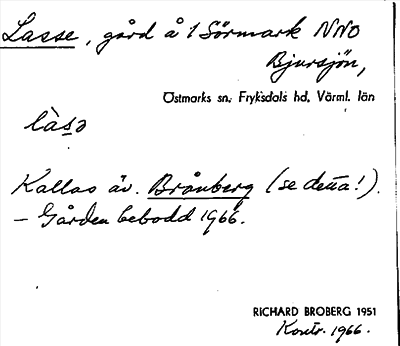 Lasse, gård å 1 Sörmark NNO
Bjursjön,
Östmarks sn. Fryksdals hd, Värml. län
làsə
Kallas äv. Brånberg (se detta!).
– Gården bebodd 1966.
RICHARD BROBERG 1951
Kontr. 1966.